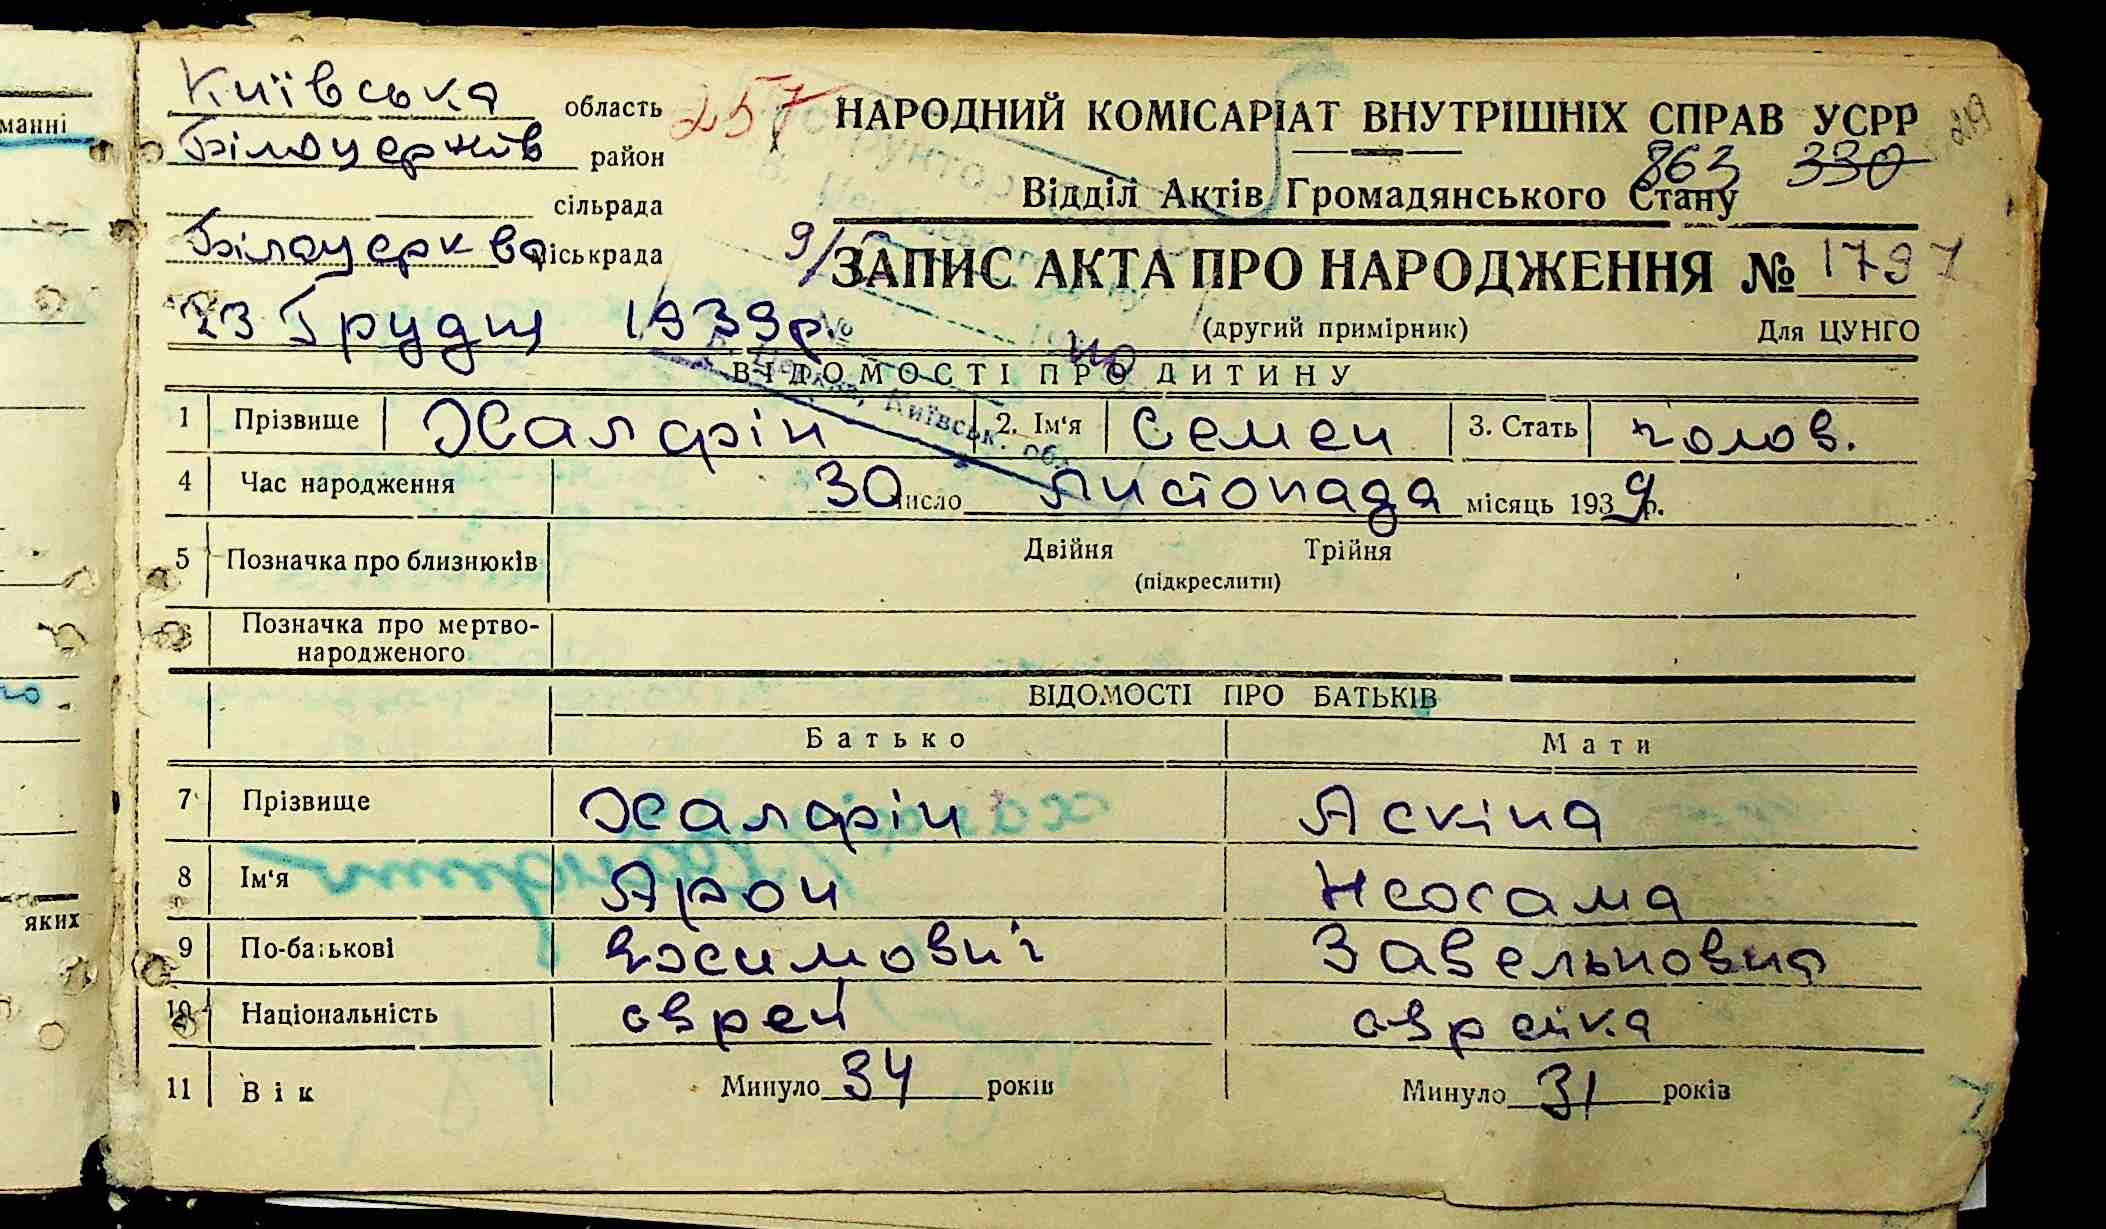 манні
яких
Київська область
Білоцерків район
сільрада
Білоцерква міськрада
23 Грудня 1939р.
257
НАРОДНИЙ КОМІСАРІАТ ВНУТРІШНІХ СПРАВ УСРР
219
863 330
Відділ Актів Громадянського Стану
ЗАПИС АКТА ПРО НАРОДЖЕННЯ № 1797
(другий примірник) Для ЦУНГО
ВІДОМОСТІ ПРО ДИТИНУ
1 Прізвище Халфін 2. Ім'я Семен 3. Стать чолов.
4 Час народження 30 число Листопада місяць 1939р.
5 Позначка про близнюків Двійня Трійня
(підкреслити)
6 Позначка про мертво-
народженого
ВІДОМОСТІ ПРО БАТЬКІВ
Батько Мати
7 Прізвище Халфін Аскіна
8 Ім'я Арон
9 По-батькові Завельновна
10 Національність єврей єврейка
11 Вік Минуло 34 років Минуло 31 років